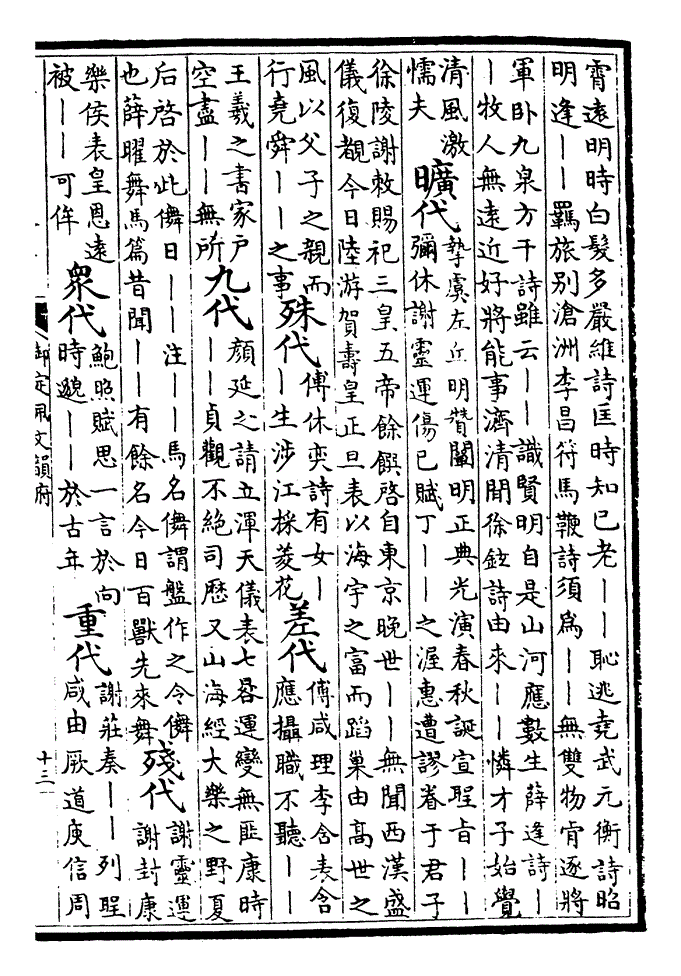 霄遠明時白髮多嚴維詩匡時知已老——恥逃堯武元衡詩昭
明逢——羈旅别滄洲李昌符馬鞭詩須為——無雙物肯逐將
軍卧九泉方干詩雖云——識賢明自是山河應數生薛逢詩—
—牧人無遠近好將能事濟清閒徐鉉詩由來——憐才子始覺
清風激
懦夫
曠代
摯虞左丘明賛闡明正典光演春秋誕宣聖旨——
彌休謝靈運傷已賦丁——之渥惠遭謬眷于君子
徐陵謝敕賜祀三皇五帝餘饌啓自東京晚世——無聞西漢盛
儀復覩今日陸游賀壽皇正旦表以海宇之富而蹈巢由高世之
風以父子之親而
行堯舜——之事
殊代
傅休奕詩有女—
—生涉江採菱花
差代
傅咸理李含表含
應攝職不聽——
王羲之書家户
空盡——無所
九代
顔延之請立渾天儀表七晷運變無匪康時
—貞觀不絶司歴又山海經大樂之野夏
后啓於此儛日——注——馬名儛謂盤作之令儛
也薛曜舞馬篇昔聞——有餘名今日百獸先來舞
殘代
謝靈運
謝封康
樂侯表皇恩遠
被——可侔
衆代
鮑照賦思一言於向
時邈——於古年
重代
謝莊奏——列聖
咸由厥道庾信周
御定佩文韻府
十三